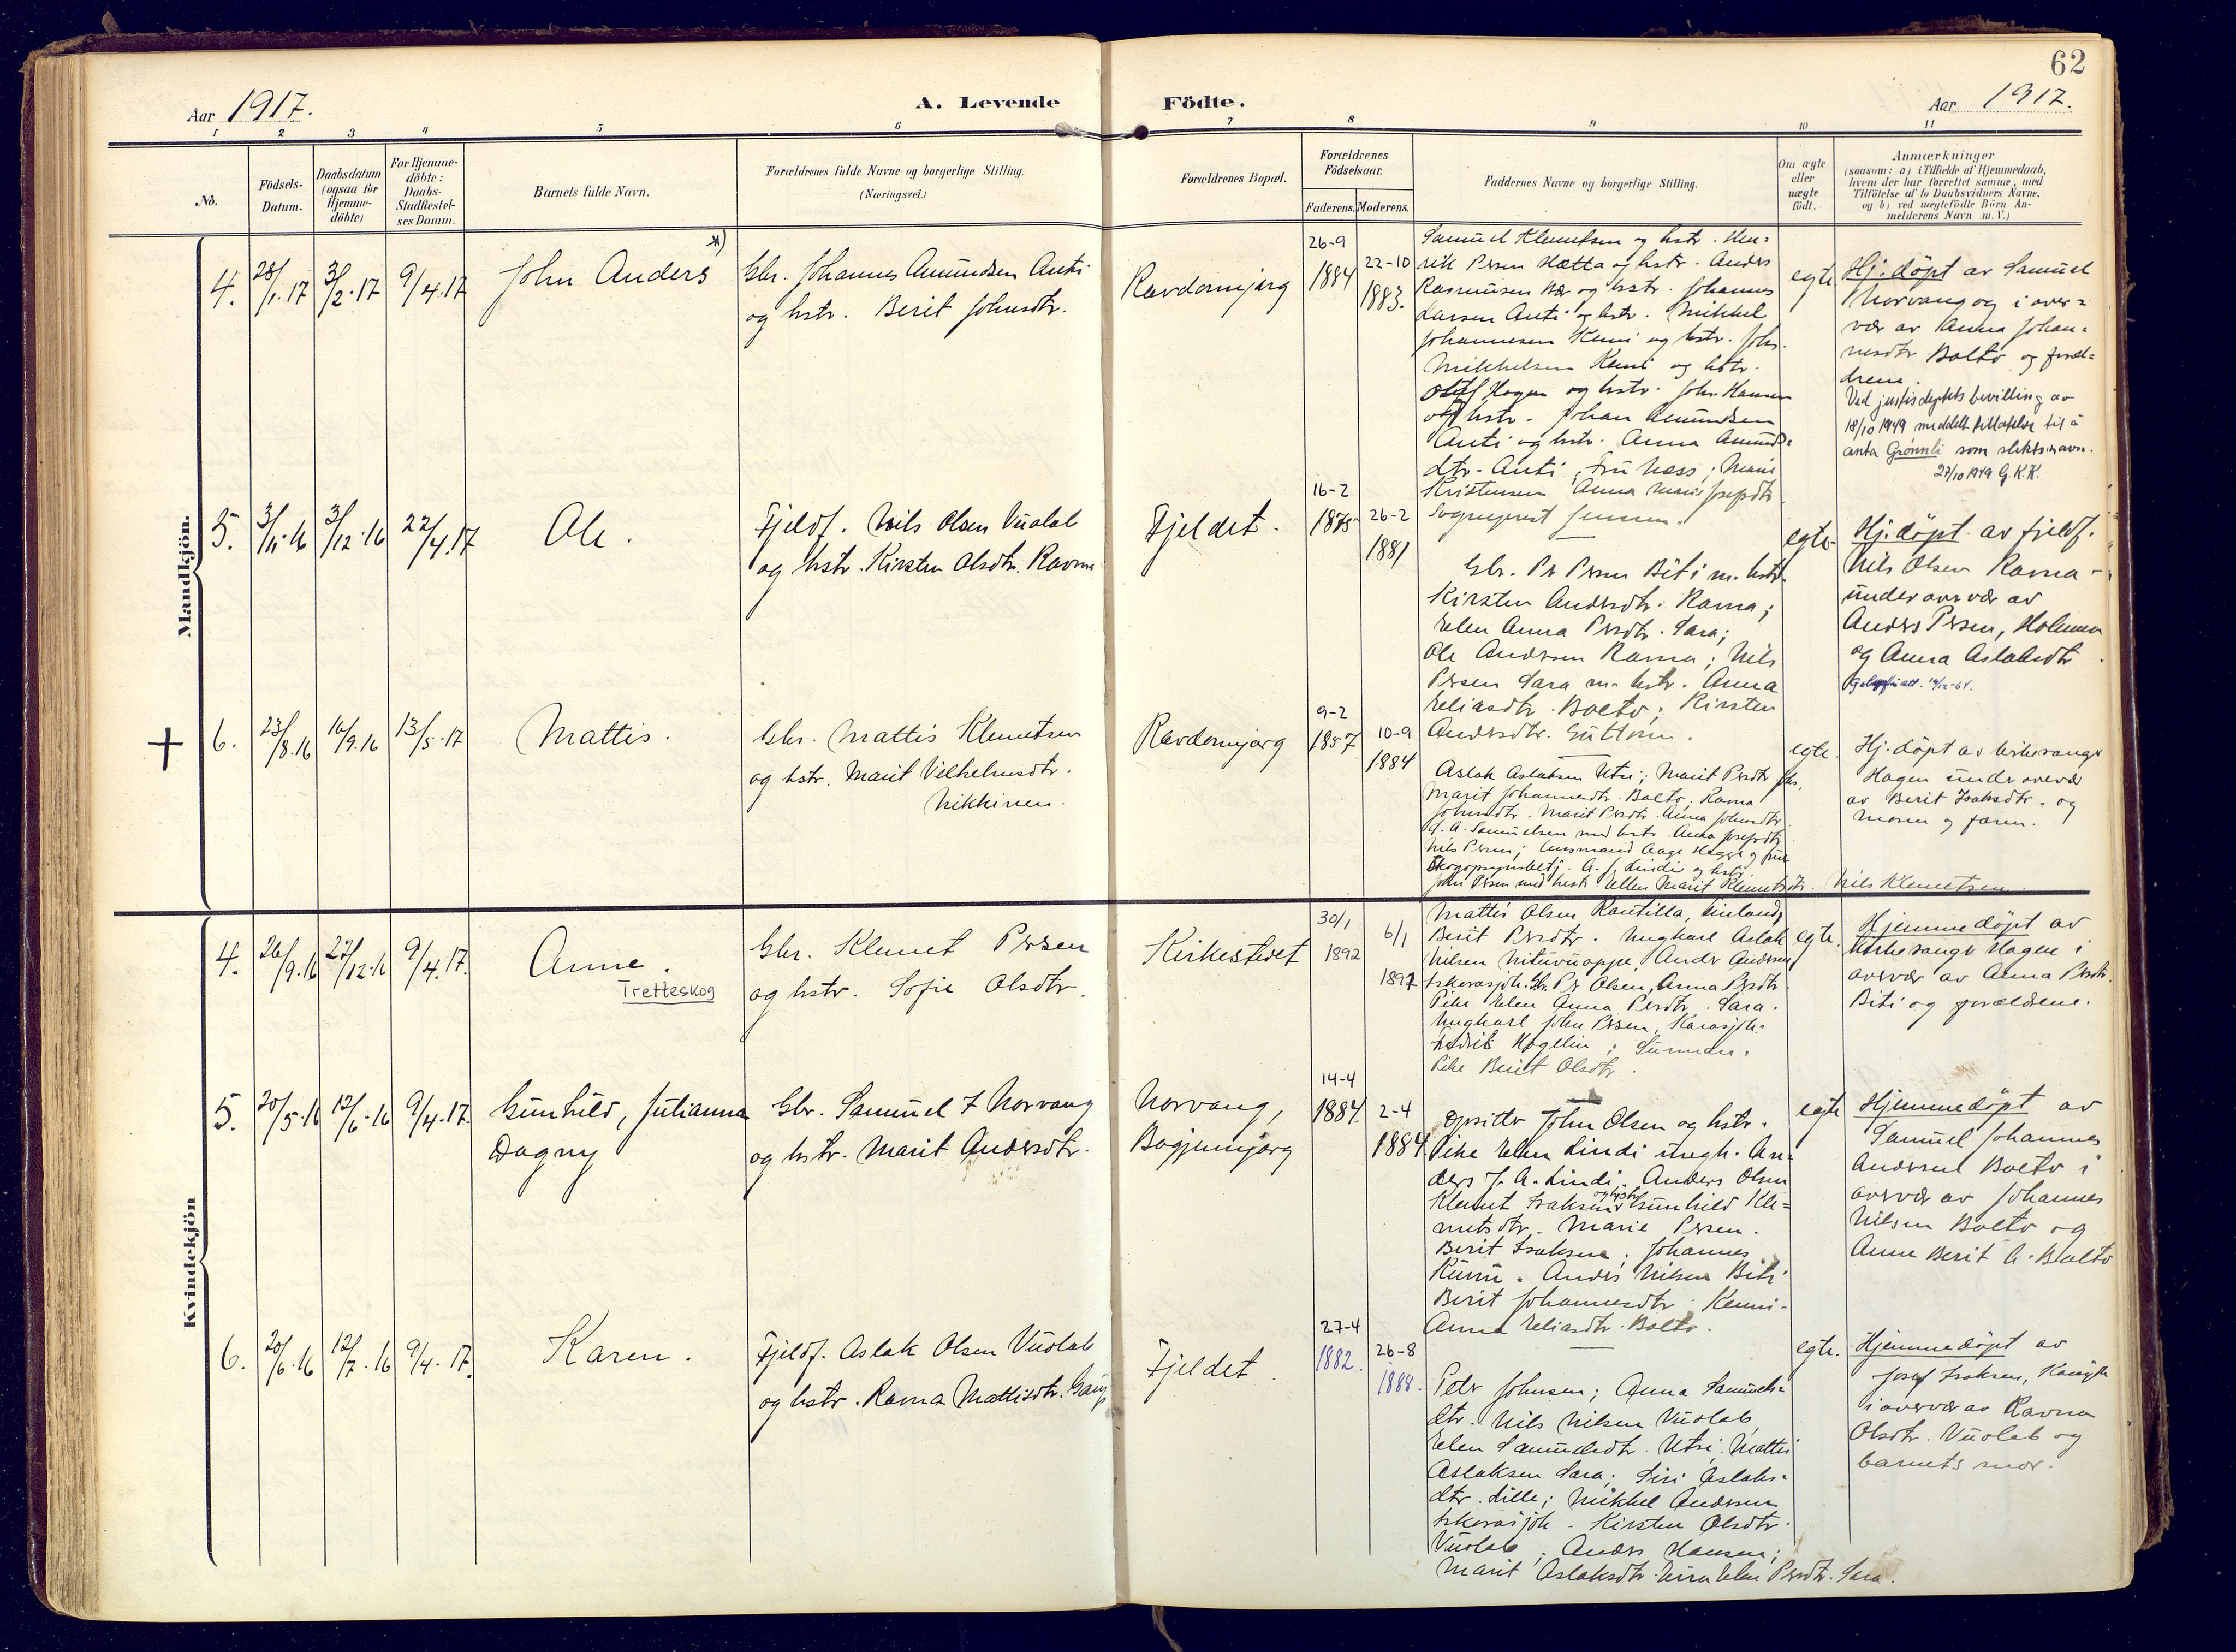 62
Aar 1917.
A. Levende Födte.
Aar 1917.
1 2 3 4 5 6 7 8 9 10 11
No.
Födsels-
Datum.
Daabsdatum
(ogsaa for
Hjemme-
döbte)
For Hjemme-
döbte:
Daabs-
Stadfæstel-
ses Datum.
Barnets fulde Navn.
Forældrenes fulde Navne og borgerlige Stilling.
(Næringsvei.)
Forældrenes Bopæl.
Forældrenes
Födselsaar.
Faderens. Moderens.
Faddernes Navne og borgerlige Stilling.
Om ægte
eller
uægte
födt.
Anmærkninger
(saasom: a) i Tilfælde af Hjemmedaab,
hvem der har forrettet samme, med
Tilföielse af to Daabsvidners Navne.
og b) ved uægtefödte Börn An-
melderens Navn m. V.)
Mandkjön.
4.
28/1.17
3/2.17
9/4.17
John Anders *)
Gbr. Johannes Amundsen Anti
og hstr. Berit Johnsdtr.
Ravdomjarg
26-9
1884
22-10
1883.
Samuel Klemetsen og hstr. Hen-
rik Persen Hætta og hstr. Anders
Rasmussen Bær og hstr. Johannes
Larsen Anti og hstr. Mikkel
Johannesen Kemi og hstr. John
Mikkelsen Kemi og hstr.
Olaf Hagen og hstr. John Hansen
og hstr. Johan Amundsen
Anti og hstr. Anna Amunds-
dtr. Anti, Fru Næss; Marie
Kristensen Anna Marie Josefsdtr
Sogneprest Jensen.
egte
Hj. döpt av Samuel
Norvang og i over-
vær av Anna Johan-
nesdtr Balto og foræl-
drene.
Ved justisdeptets bevilling av
18/10 1949 meddelt tillatelse til å
anta Grønnli som slektsnavn.
27/10 1949 G.K.K.
5.
3/11.16
3/12.16
22/4.17
Ole.
Fjeldf. Nils Olsen Vuolab
og hstr. Kirsten Olsdtr. Ravna
Fjeldet.
16-2
1875
26-2
1881
Gbr. Per Persen Biti m. hstr.
Kirsten Andersdtr. Ravna;
Elen Anna Persdtr. Sara;
Ole Andersen Ravna; Nils
Persen Sara m. hstr. Anna
Eliasdtr. Balto; Kirsten
Andersdtr. Guttorm.
egte
Hj. döpt av fjeldf.
Nils Olsen Ravna
under overvær av
Anders Persen, Holmen
og Anna Aslaksdtr.
6.
23/8.16
16/9.16
13/5.17
Mattis.
Gbr. Mattis Klemetsen
og hstr. Marit Vilhelmsdtr.
Nikkinen.
Ravdomjarg
9-2
1857
10-9
1884
Aslak Aslaksen Utsi; Marit Persdtr
Marit Johannesdtr. Balto; Ravna
Johnsdtr. Marit Persdtr. Anna Johnsdtr
J. A. Samuelsen med hstr. Anna Josefsdtr
Nils Persen; Lensmand Aage Hegge og frue
Skogopsynsbetj. A. J. Lindi og hstr.
John Persen med hustr Ellen Marit Klemetsdtr. Nils Klemetsen
egte.
Hj. döpt av kirkesanger
Hagen under overvær
av Berit Isaksdtr. og
moren og faren.
Kvindekjön
4.
26/9.16
27/12.16
9/4.17.
Anne.
Tretteskog
Gbr. Klemet Persen
og hstr. Sofie Olsdtr.
Kirkestedet
30/1
1892
6/1
1892
Mattis Olsen Rautilla, Finland,
Berit Persdtr. Ungkarl Aslak
Nilsen Nituvuoppe, Anders Andersen
Iskorasjok. Gbr. Per Olsen, Anna Persdtr
Pike Elen Anna Persdtr. Sara.
Ungkarl John Persen, Karasjok.
Pike Berit Olsdtr.
egte.
Hjemmedöpt av
kirkesanger Hagen i
overvær av Anna Persdtr.
Biti og forældrene.
5.
20/5.16
12/6.16
9/4.17.
Gunhild, Julianna
Dagny
Gbr. Samuel J Norvang
og hstr. Marit Andersdtr.
Norvang,
Bogjemjarg
14-4
1884
2-4
1884
Opsitter John Olsen og hstr.
Pike Elen Lindi ungk. An-
ders J. A. Lindi. Anders Olsen
Klemet Isaksen og hstr Gunhild Kle-
metsdtr. Marie Persen.
Berit Isaksen; Johannes
Anders Nilsen Biti
Berit Johannesdtr. Kemi-
Anna Eliasdtr. Balto.
egte
Hjemmedöpt av
Samuel Johannes
Andersen Balto i
overvær av Johannes
Nilsen Balto og
Anne Berit A. Balto
6.
20/6.16
12/7.16
9/4.17.
Karen.
Fjeldf. Aslak Olsen Vuolab
og hstr. Ravna Mattisdtr. Gaup
Fjeldet.
27-4
1882.
26-8
1888.
Peter Johnsen; Anna Samuels-
dtr. Nils Nilsen Vuolab,
Elen Samuelsdtr. Utsi; Mattis
Aslaksen Sara; Siri Aslaks-
dtr. Lille; Mikkel Andersen
Iskorasjok. Kirsten Olsdtr.
Vuolab; Anders Hansen;
Marit Aslaksdtr. Elen Persdtr. Sara.
egte.
Hjemmedöpt av
Josef Isaksen, Karasjok
i overvær av Ravna
Olsdtr. Vuolab og
barnets mor.